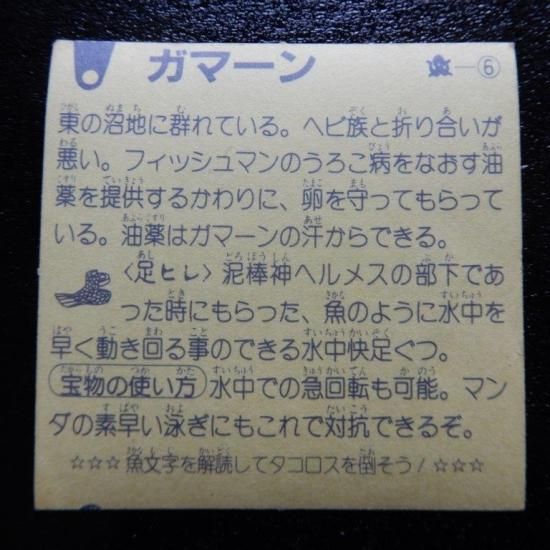 ガマーン ー⑥
東の沼地に群れている。ヘビ族と折り合いが
悪い。フィッシュマンのうろこ病をなおす油
薬を提供するかわりに、卵を守ってもらって
いる。油薬はガマーンの汗からできる。
〈足ヒレ〉泥棒神ヘルメスの部下であ
った時にもらった、魚のように水中を
早く動き回る事のできる水中快足ぐつ。
宝物の使い方 水中での急回転も可能。マン
ダの素早い泳ぎにもこれで対抗できるぞ。
☆☆☆魚文字を解読してタコロスを倒そう!☆☆☆